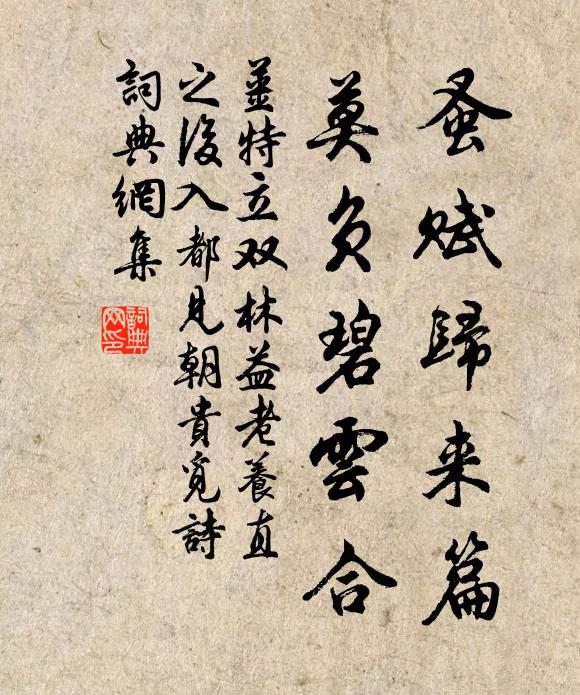 蚤赋歸来篇
莫负碧雲合
薑特立双林益老養直
之後入都見朝貴覓詩
詞典網集
詞典网印